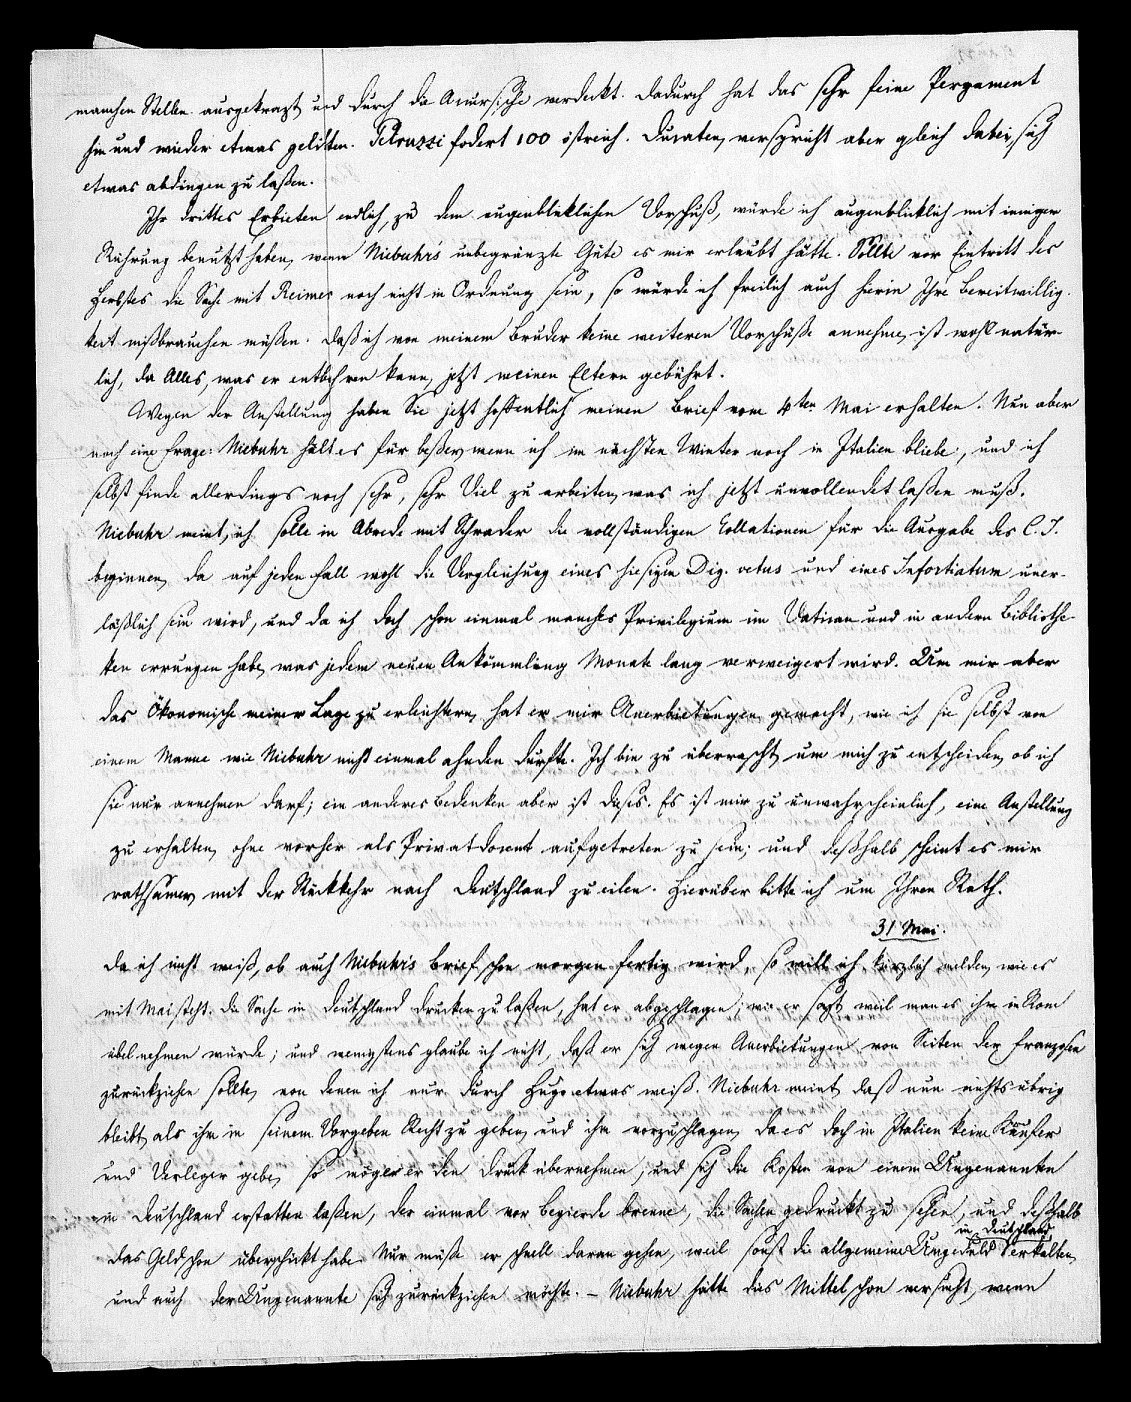 manchen Stellen ausgekrazt und durch die Accursische verdeckt. Dadurch hat das sehr feine Pergament
hin und wieder etwas gelitten. Petruzzi fodert 100 östreich. Ducaten, verspricht aber gleich dabei, sich
etwas abdingen zu laßen.
Ihr drittes Erbieten endlich, zu dem augenbliklichen Vorschuß, würde ich augenblicklich mit inniger
Rührung benutzt haben, wenn Niebuhr's unbegränzte Güte es mir erlaubt hätte. Sollte vor Eintritt des
Herbstes die Sache mit Reimer noch nicht in Ordnung sein, so würde ich freilich auch hierin Ihre Bereitwillig-
keit mißbrauchen müßen. Daß ich von meinem Bruder keine weiteren Vorschüße annehme, ist wohl natür-
lich, da Alles, was er entbehren kann, jetzt meinen Eltern gebührt.
Wegen der Anstellung haben Sie jetzt hoffentlich meinen Brief vom 4ten Mai erhalten. Nun aber
noch eine Frage: Niebuhr hält es für beßer, wenn ich im nächsten Winter noch in Italien bliebe, und ich
selbst finde allerdings noch sehr, sehr Viel zu arbeiten, was ich jetzt unvollendet laßen muß.
Niebuhr meint, ich solle in Abrede mit Schrader die vollständigen Collationen für die Ausgabe des C. J.
beginnen, da auf jeden Fall wohl die Vergleichung eines hiesigen Dig. vetus und eines Infortiatum uner-
läßlich sein wird, und da ich doch schon einmal manches Privilegium im Vatican und in andern Bibliothe-
ken errungen habe, was jedem neuen Ankömmling Monate lang verweigert wird. Um mir aber
das Ökonomische meiner Lage zu erleichtern, hat er mir Anerbietungen gemacht, wie ich sie selbst von
einem Manne wie Niebuhr nicht einmal ahnden durfte. Ich bin zu überrascht, um mich zu entscheiden, ob ich
sie nur annehmen darf; ein anderes Bedenken aber ist dieses. Es ist mir zu unwahrscheinlich, eine Anstellung
zu erhalten, ohne vorher als Privatdocent aufgetreten zu sein; und deßhalb scheint es mir
rathsamer, mit der Rückkehr nach Deutschland zu eilen. Hierüber bitte ich um Ihren Rath.
31 Mai.
Da ich nicht weiß, ob auch Niebuhr's Brief schon morgen fertig wird, so will ich kürzlich melden, wie es
mit Mai steht. Die Sache in Deutschland drucken zu laßen, hat er abgeschlagen; wie er sagt, weil man es ihm in Rom
übel nehmen würde; und wenigstens glaube ich nicht, daß er sich wegen Anerbietungen von Seiten der Franzosen
zurückziehen sollte, von denen ich nur durch Hugo etwas weiß. Niebuhr meint, daß nun nichts übrig
bleibt, als ihm in seinem Vorgeben Recht zu geben, und ihm vorzuschlagen, da es doch in Italien keine Käufer
und Verleger gebe, so möge er den Druck übernehmen, und sich die Kosten von einem Ungenannten
in Deutschland erstatten laßen, der einmal vor Begierde brenne, die Sachen gedruckt zu sehen, und deßhalb
in Deutschland
das Geld schon überschickt habe. Nur müße er schnell daran gehen, weil sonst die allgemeine Ungeduld erkalten,
und auch der Ungenannte sich zurückziehen möchte. – Niebuhr hätte dies Mittel schon versucht, wenn